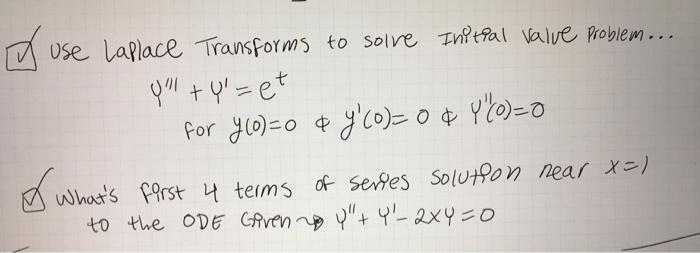 Use Laplace Transforms to solve Initial Value Problem...
y''' + y' = e^t
for y(0)=0 & y'(0)=0 & y''(0)=0
What's first 4 terms of series solution near x=1
to the ODE Given → y'' + y' - 2xy = 0